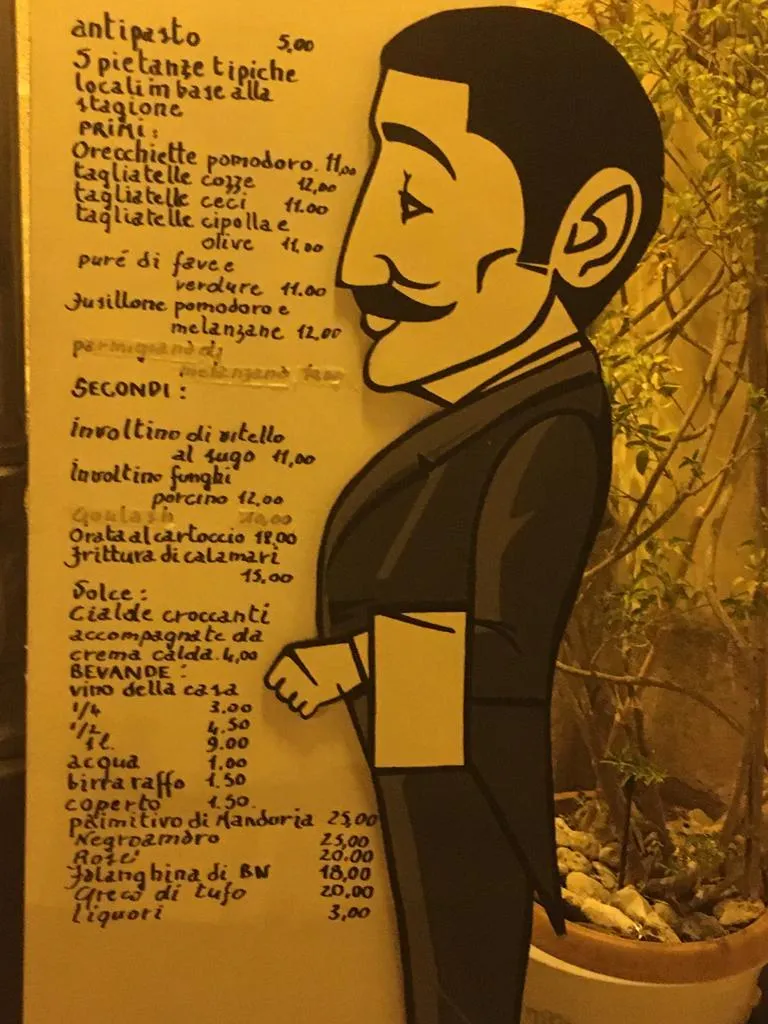 antipasto 5,00
5 pietanze tipiche
locali in base alla
stagione
PRIMI:
Orecchiette pomodoro. 11,00
tagliatelle cozze 12,00
tagliatelle ceci 11.00
tagliatelle cipolla e
olive 11,00
puré di fave e
verdure 11.00
fusillone pomodoro e
melanzane 12,00
parmigiana di
melanzana
SECONDI:
involtino di vitello
al sugo 11,00
involtino funghi
porcino 12,00
Goulash
Orata al cartoccio 18,00
frittura di calamari
15,00
Dolce:
cialde croccanti
accompagnate da
crema calda. 4,00
BEVANDE:
vino della casa
1/4 3.00
1/2 4.50
1 l. 9.00
acqua 1.00
birra raffo 1.50
coperto 1.50.
primitivo di Manduria 25,00
Negroamaro 25,00
Rosé 20.00
falanghina di BN 18,00
Greco di tufo 20,00
liquori 3,00